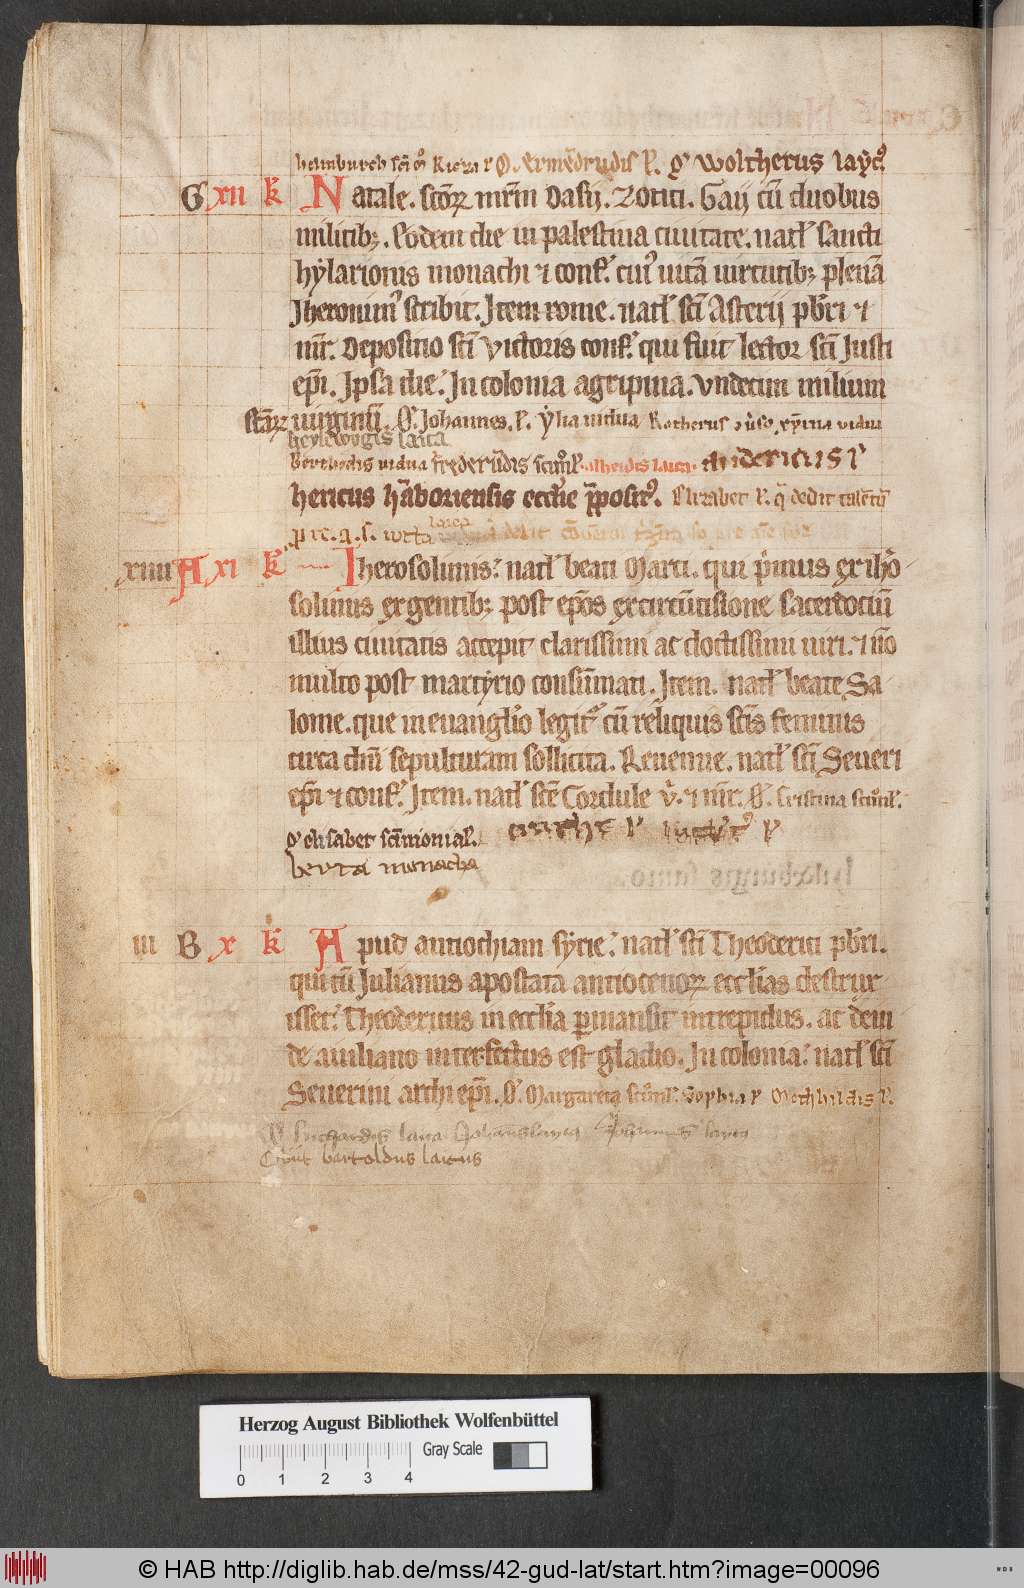 heinburch Ricza Ermēdrudis P. woltherus layc⁹
G xii k̄ Natale. sc̄oꝝ mr̄m Dasij. Zotici. Gaij cū duobus
militib;. Eodem die in palestina ciuitate. natl' sancti
hẏlarionis monachi ⁊ conf. cui⁹ uitā uirtutib; plenā
Jheronim⁹ scribit. Jtem rome. natl' sc̄i Asterij pb̄ri ⁊
mr̄. Depositio sc̄i Victoris conf. qui fuit lector sc̄i Justi
ep̄i. Jpsa die. Jn colonia agripina. Vndecim milium
sc̄aꝝ uirginū. O. Johannes. P. ẏlia uidua Rotherus vidua
heylewogis laica
Berthedis uidua frederūdis alheidis laica. thidericus P
henricus hāboriensis eccl̄ie p̄posit⁹. Elizabet P. q̄ dedit talētū

xiiii A xi k̄ Jherosolimis. natl' beati Marci. qui p̄mus ex ih̄o-
solimis ex gentib; post ep̄os ex circūcisione sacerdociū
illius ciuitatis accepit clarissimi ac doctissimi uiri. ⁊ nō
multo post martẏrio consūmati. Jtem. natl' beate Sa-
lome. que in euanglio legit cū reliquis sc̄is feminis
circa dn̄i sepulturam sollicita. Reuenne. natl' sc̄i Seueri
ep̄i ⁊ conf. Jtem. natl' sc̄e Cordule v̄. ⁊ mr̄. O. Cristina
elisabet sc̄imonial.
berta monacha
iii B x k̄ Apud antiochiam sẏrie. natl' sc̄i Theoderiti pb̄ri.
qui cū Julianus apostata antiocenoꝝ eccl̄ias destrux-
isset. Theoderitus in eccl̄ia p̄mansit intrepidus. ac dein
de a iuliano interfectus est gladio. Jn colonia. natl' sc̄i
Seuerini archiep̄i. O. Margareta Sophia P Mechhildis P.
luchardis laica Johannes laycus Johannes laycus
bartoldus laicus
Herzog August Bibliothek Wolfenbüttel
0 1 2 3 4 Gray Scale
© HAB http://diglib.hab.de/mss/42-gud-lat/start.htm?image=00096